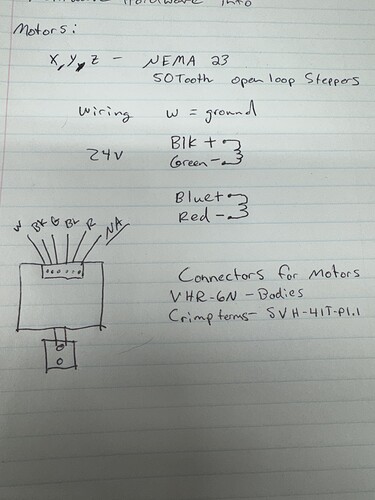 Hardware Info
Motors:
X, Y, Z - NEMA 23
50 Tooth open loop Steppers
Wiring W = ground
24V
Blk +
Green -
Blue +
Red -
W BK G BL R NA
Connectors for Motors
VHR-6N - Bodies
Crimp terms - SVH-41T-P1.1